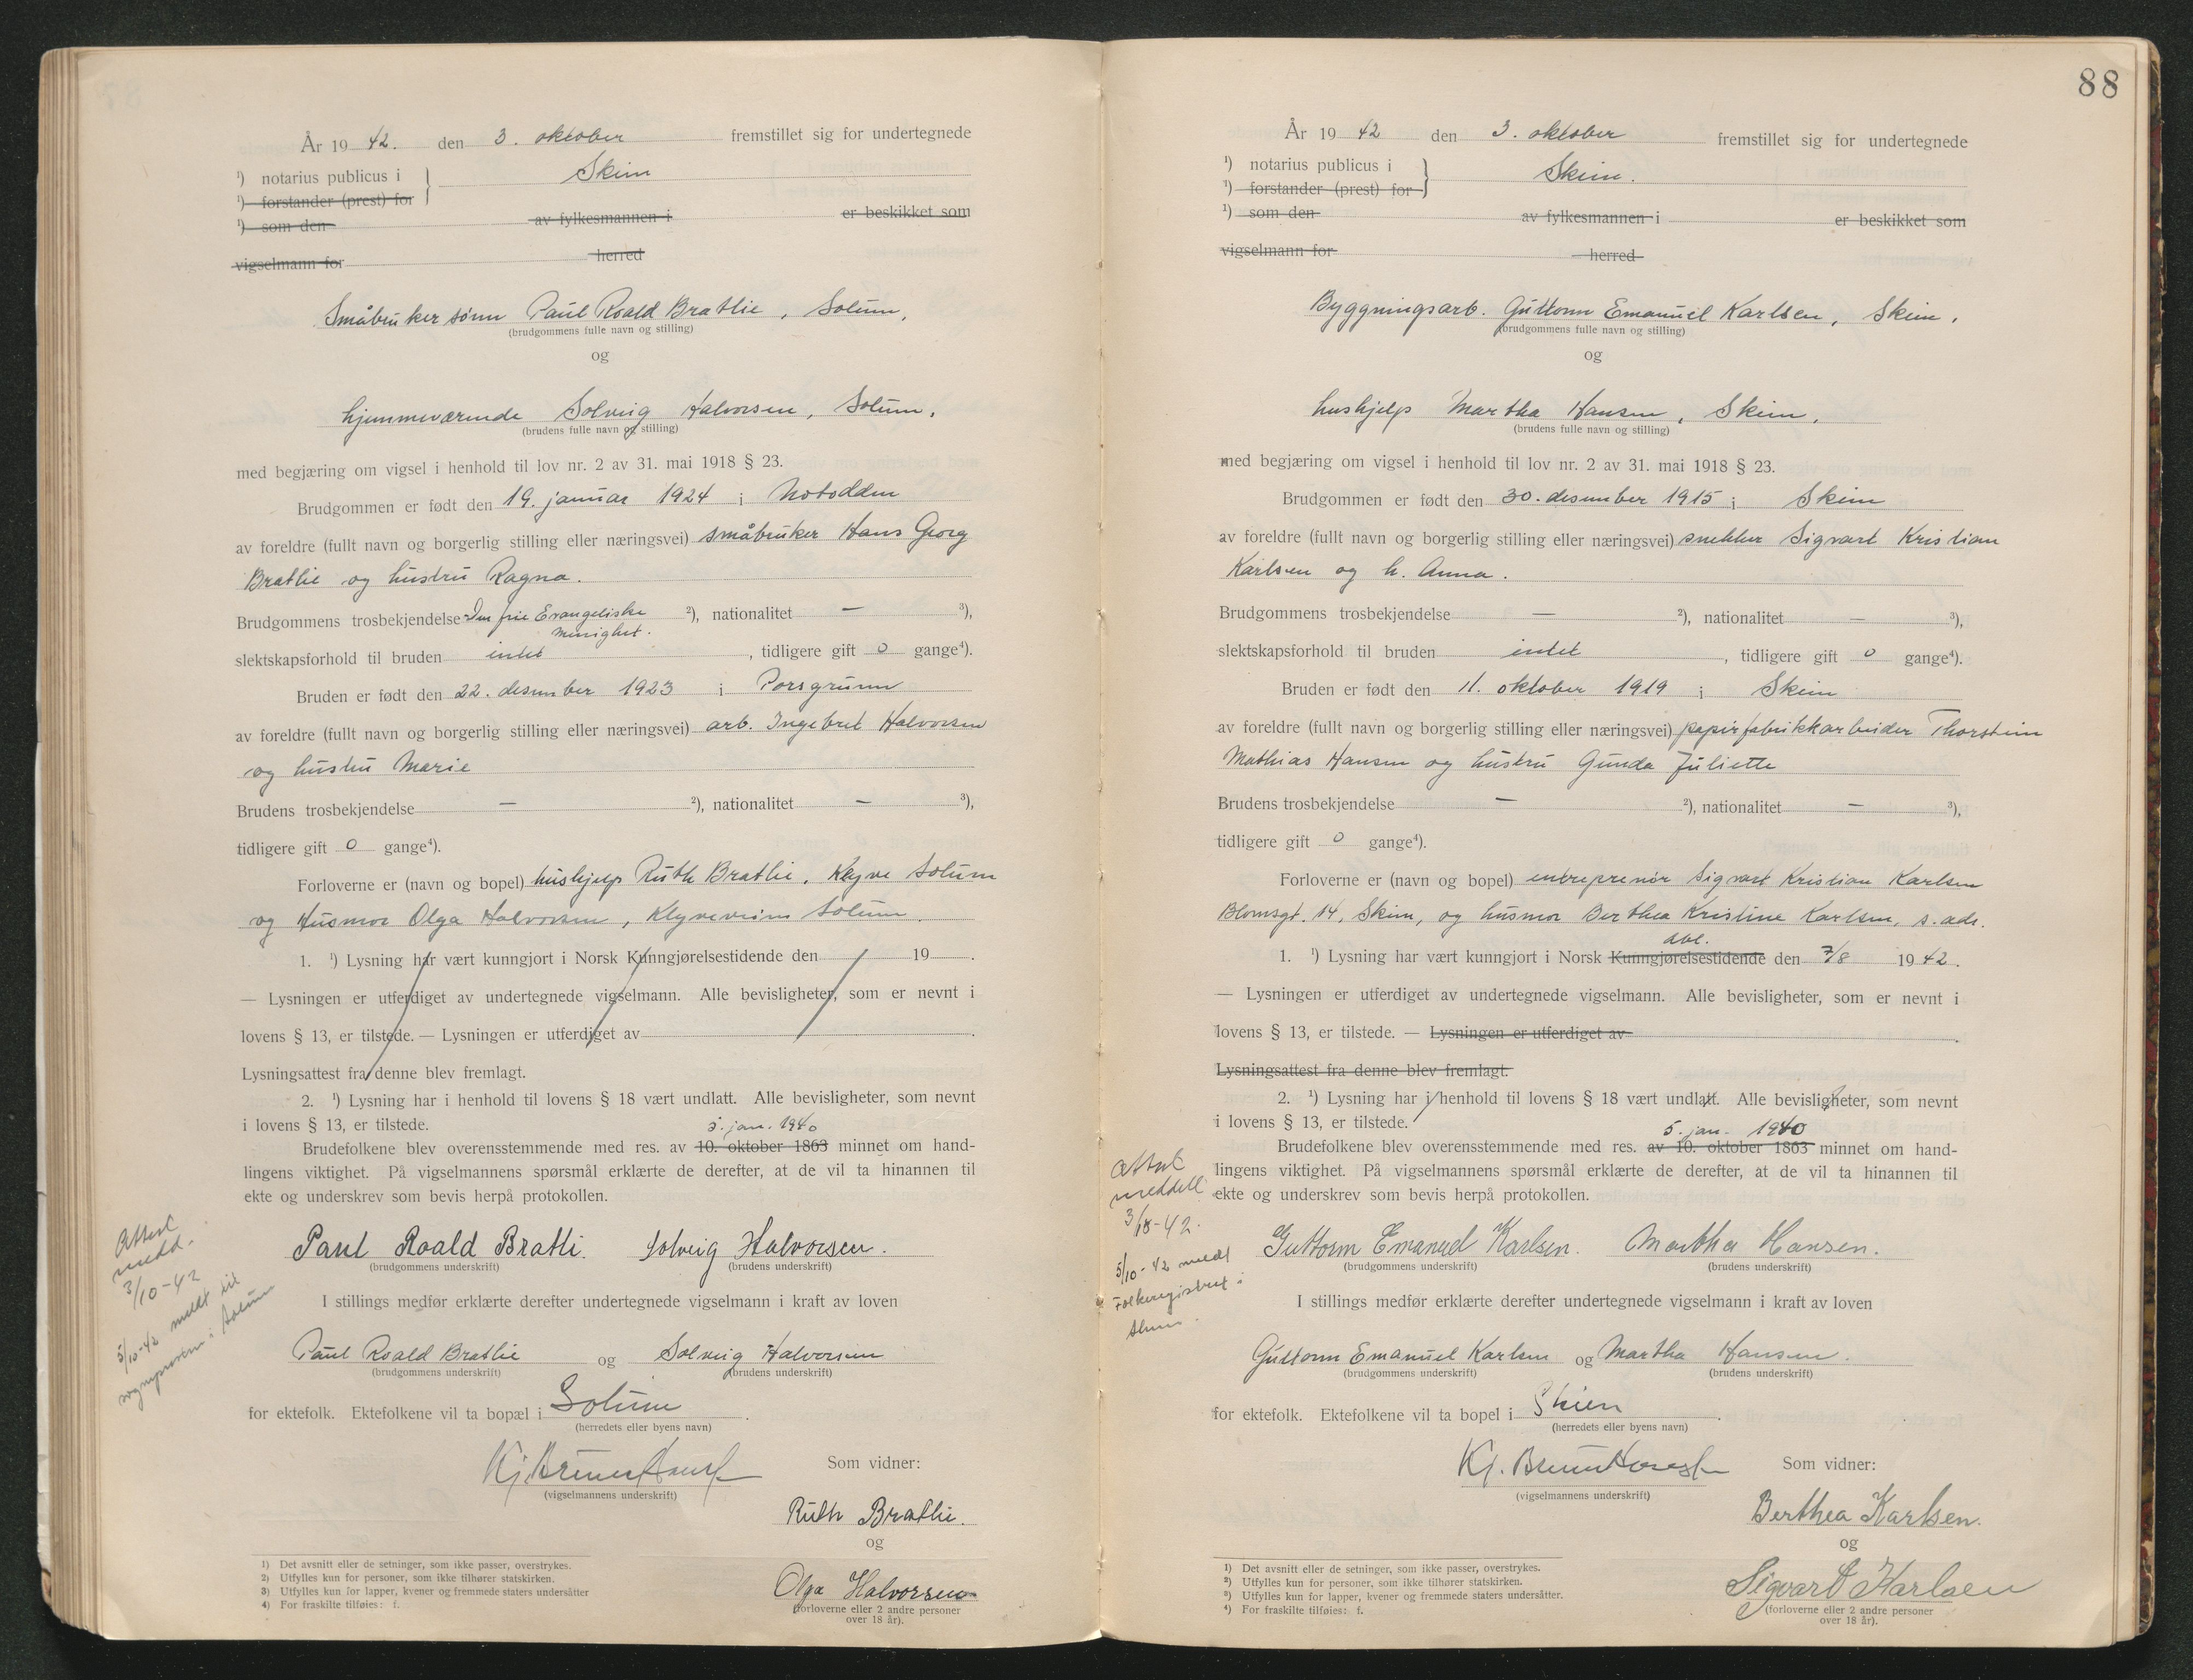 År 19 42. den 3. oktober fremstillet sig for undertegnede
¹) notarius publicus i } Skien
¹) forstander (prest) for
¹) som den av fylkesmannen i er beskikket som
vigselmann for herred
Småbrukersønn Paul Roald Bratlie, Solum,
(brudgommens fulle navn og stilling)
og
hjemmeværende Solveig Halvorsen, Solum,
(brudens fulle navn og stilling)
med begjæring om vigsel i henhold til lov nr. 2 av 31. mai 1918 § 23.
Brudgommen er født den 19. januar 1924 i Notodden
av foreldre (fullt navn og borgerlig stilling eller næringsvei) småbruker Hans Georg
Bratlie og hustru Ragna.
Brudgommens trosbekjendelse Den frie Evangeliske ²), nationalitet — ³),
menighet.
slektskapsforhold til bruden intet, tidligere gift 0 gange⁴).
Bruden er født den 22. desember 1923 i Porsgrunn
av foreldre (fullt navn og borgerlig stilling eller næringsvei) arb. Ingebret Halvorsen
og hustru Marie
Brudens trosbekjendelse — ²), nationalitet — ³),
tidligere gift 0 gange⁴).
Forloverne er (navn og bopel) hushjelp Ruth Bratlie, Klyve Solum
og Husmor Olga Halvorsen, Klyveveien Solum.
1. ¹) Lysning har vært kunngjort i Norsk Kunngjørelsestidende den 19 .
— Lysningen er utferdiget av undertegnede vigselmann. Alle bevisligheter, som er nevnt i
lovens § 13, er tilstede. — Lysningen er utferdiget av .
Lysningsattest fra denne blev fremlagt.
2. ¹) Lysning har i henhold til lovens § 18 vært undlatt. Alle bevisligheter, som nevnt
i lovens § 13, er tilstede.
5. jan. 1940
Brudefolkene blev overensstemmende med res. av 10. oktober 1863 minnet om hand-
lingens viktighet. På vigselmannens spørsmål erklærte de derefter, at de vil ta hinannen til
ekte og underskrev som bevis herpå protokollen.
Attest
medd.
3/10-42
5/10-42 meldt til
sognepresten i Solum
Paul Roald Bratli. Solveig Halvorsen.
(brudgommens underskrift) (brudens underskrift)
I stillings medfør erklærte derefter undertegnede vigselmann i kraft av loven
Paul Roald Bratlie og Solveig Halvorsen
(brudgommens underskrift) (brudens underskrift)
for ektefolk. Ektefolkene vil ta bopæl i Solum.
(herredets eller byens navn)
Kj. Som vidner:
(vigselmannens underskrift)
Ruth Bratlie.
og
Olga Halvorsen
(forloverne eller 2 andre personer
over 18 år).
1) Det avsnitt eller de setninger, som ikke passer, overstrykes.
2) Utfylles kun for personer, som ikke tilhører statskirken.
3) Utfylles kun for lapper, kvener og fremmede staters undersåtter
4) For fraskilte tilføies: f.
88
År 19 42 den 3. oktober fremstillet sig for undertegnede
¹) notarius publicus i } Skien.
¹) forstander (prest) for
¹) som den av fylkesmannen i er beskikket som
vigselmann for herred
Byggningsarb. Guttorm Emanuel Karlsen, Skien,
(brudgommens fulle navn og stilling)
og
hushjelp Martha Hansen, Skien,
(brudens fulle navn og stilling)
med begjæring om vigsel i henhold til lov nr. 2 av 31. mai 1918 § 23.
Brudgommen er født den 30. desember 1915 i Skien
av foreldre (fullt navn og borgerlig stilling eller næringsvei) snekker Sigvart Kristian
Karlsen og h. Anna.
Brudgommens trosbekjendelse — ²), nationalitet — ³),
slektskapsforhold til bruden intet, tidligere gift 0 gange⁴).
Bruden er født den 11. oktober 1919 i Skien
av foreldre (fullt navn og borgerlig stilling eller næringsvei) papirfabrikkarbeider Thorstein
Mathias Hansen og hustru Gunda Juliette
Brudens trosbekjendelse — ²), nationalitet — ³),
tidligere gift 0 gange⁴).
Forloverne er (navn og bopel) entreprenør Sigvart Kristian Karlsen
Blomsgt. 14, Skien, og husmor Berthea Kristine Karlsen, s. adr.
1. ¹) Lysning har vært kunngjort i Norsk Kunngjørelsestidende den 7/8 1942.
— Lysningen er utferdiget av undertegnede vigselmann. Alle bevisligheter, som er nevnt i
lovens § 13, er tilstede. — Lysningen er utferdiget av .
Lysningsattest fra denne blev fremlagt.
2. ¹) Lysning har i henhold til lovens § 18 vært undlatt. Alle bevisligheter, som nevnt
i lovens § 13, er tilstede.
5. jan. 1940
Brudefolkene blev overensstemmende med res. av 10. oktober 1863 minnet om hand-
lingens viktighet. På vigselmannens spørsmål erklærte de derefter, at de vil ta hinannen til
ekte og underskrev som bevis herpå protokollen.
Attest
meddelt
3/10-42.
5/10-42 meldt
Folkeregistret i
Guttorm Emanuel Karlsen. Martha Hansen.
(brudgommens underskrift) (brudens underskrift)
I stillings medfør erklærte derefter undertegnede vigselmann i kraft av loven
Guttorm Emanuel Karlsen og Martha Hansen.
(brudgommens underskrift) (brudens underskrift)
for ektefolk. Ektefolkene vil ta bopel i Skien.
(herredets eller byens navn)
Kj. Som vidner:
(vigselmannens underskrift)
Berthea Karlsen.
og
Sigvart Karlsen
(forloverne eller 2 andre personer
over 18 år).
1) Det avsnitt eller de setninger, som ikke passer, overstrykes.
2) Utfylles kun for personer, som ikke tilhører statskirken.
3) Utfylles kun for lapper, kvener og fremmede staters undersåtter.
4) For fraskilte tilføies: f.